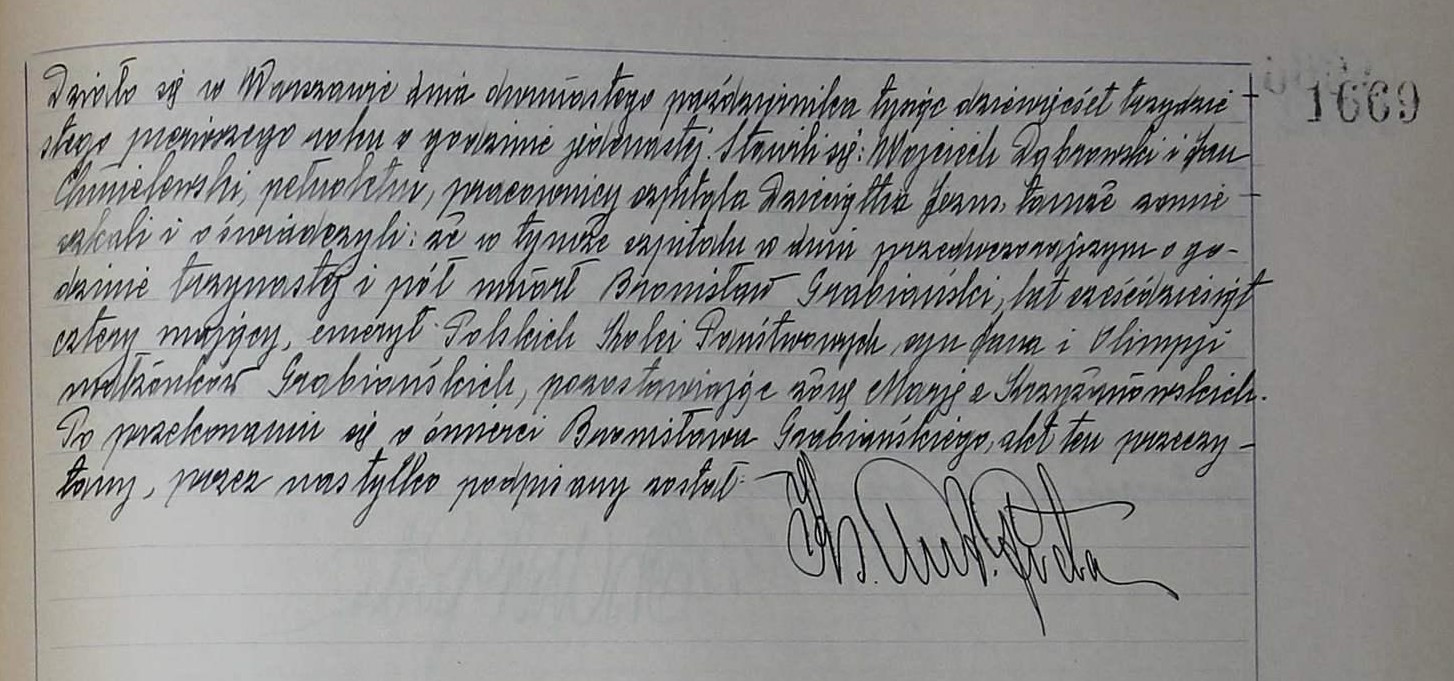 Działo się w Warszawie dnia dwunastego października tysiąc dziewięćset trzydzie
stego pierwszego roku o godzinie jedenastej. Stawili się: Wojciech Dąbrowski i Jan
Chmielewski, pełnoletni, pracownicy szpitala Dzieciątka Jezus, tamże zamie
szkali i oświadczyli: że w tymże szpitalu w dniu przedwczorajszym o go-
dzinie trzynastej i pół umarł Bronisław Grabiański, lat sześćdziesiąt
cztery mający, emeryt Polskich Kolei Państwowych, syn Jana i Olimpji
małżonków Grabiańskich, pozostawiając żonę Marję z Krzyżanowskich.
Po przekonaniu się o śmierci Bronisława Grabiańskiego, akt ten przeczy-
tany, przez nas tylko podpisany został.
Ks. Ant.
1669